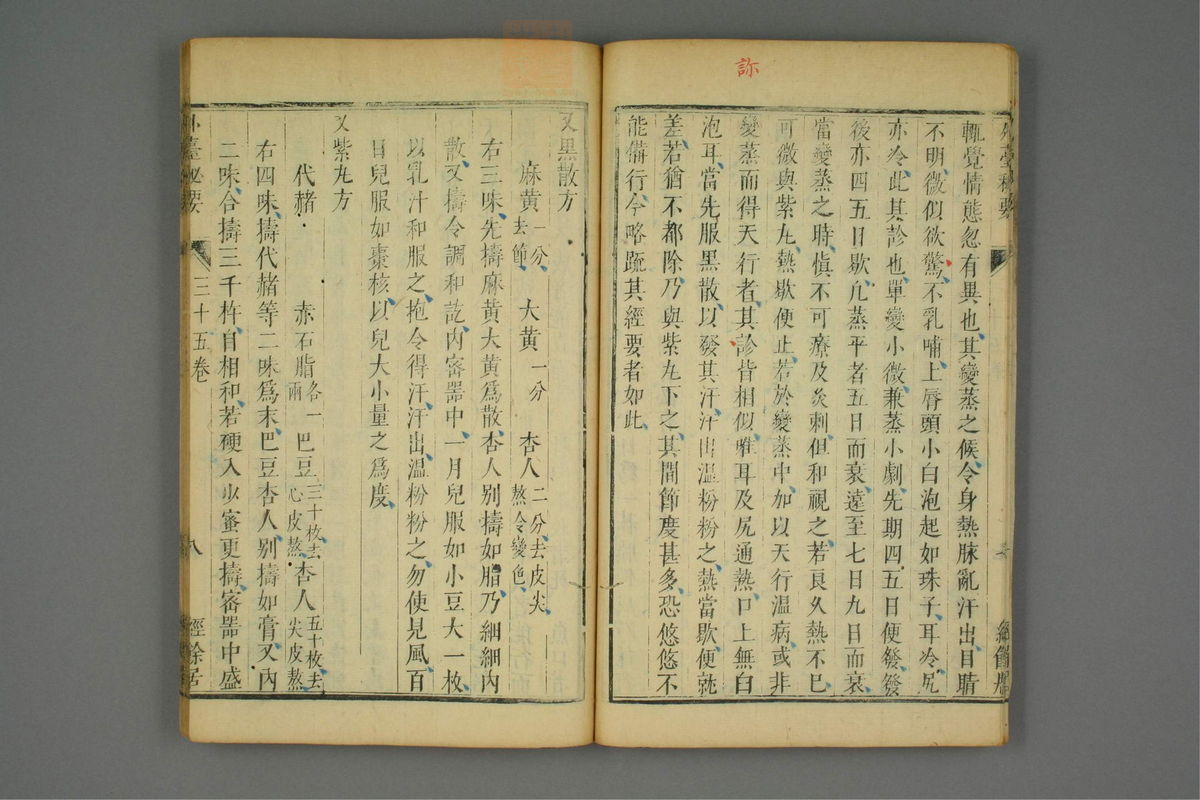 診
外臺秘要
輒覺情態忽有異也其變蒸之候令身熱脉亂汗出目睛
不明微似欲驚不乳哺上唇頭小白泡起如珠子耳冷尻
亦冷此其診也單變小微兼蒸小劇先期四五日便發發
後亦四五日歇凡蒸平者五日而衰遠至七日九日而衰
當變蒸之時慎不可療及灸刺但和視之若良久熱不已
可微與紫丸熱歇便止若於變蒸中加以天行溫病或非
變蒸而得天行者其診皆相似唯耳及尻通熱口上無白
泡耳當先服黑散以發其汗汗出溫粉粉之熱當歇便就
差若猶不都除乃與紫丸下之其間節度甚多恐悠悠不
能備行今略䟽其經要者如此
又黑散方
麻黄一分去節 大黄一分 杏人二分去皮尖熬令變色
右三味先擣麻黄大黄爲散杏人别擣如脂乃細細内
散又擣令調和訖内密噐中一月兒服如小豆大一枚
以乳汁和服之抱令得汗汗出溫粉粉之勿使見風百
日兒服如棗核以兒大小量之爲度
又紫丸方
代赭 赤石脂各一兩 巴豆三十枚去心皮熬 杏人五十枚去尖皮熬
右四味擣代赭等二味爲末巴豆杏人别擣如膏又内
二味合擣三千杵自相和若硬入少蜜更擣密噐中盛
外臺秘要 三十五卷 八 經餘居